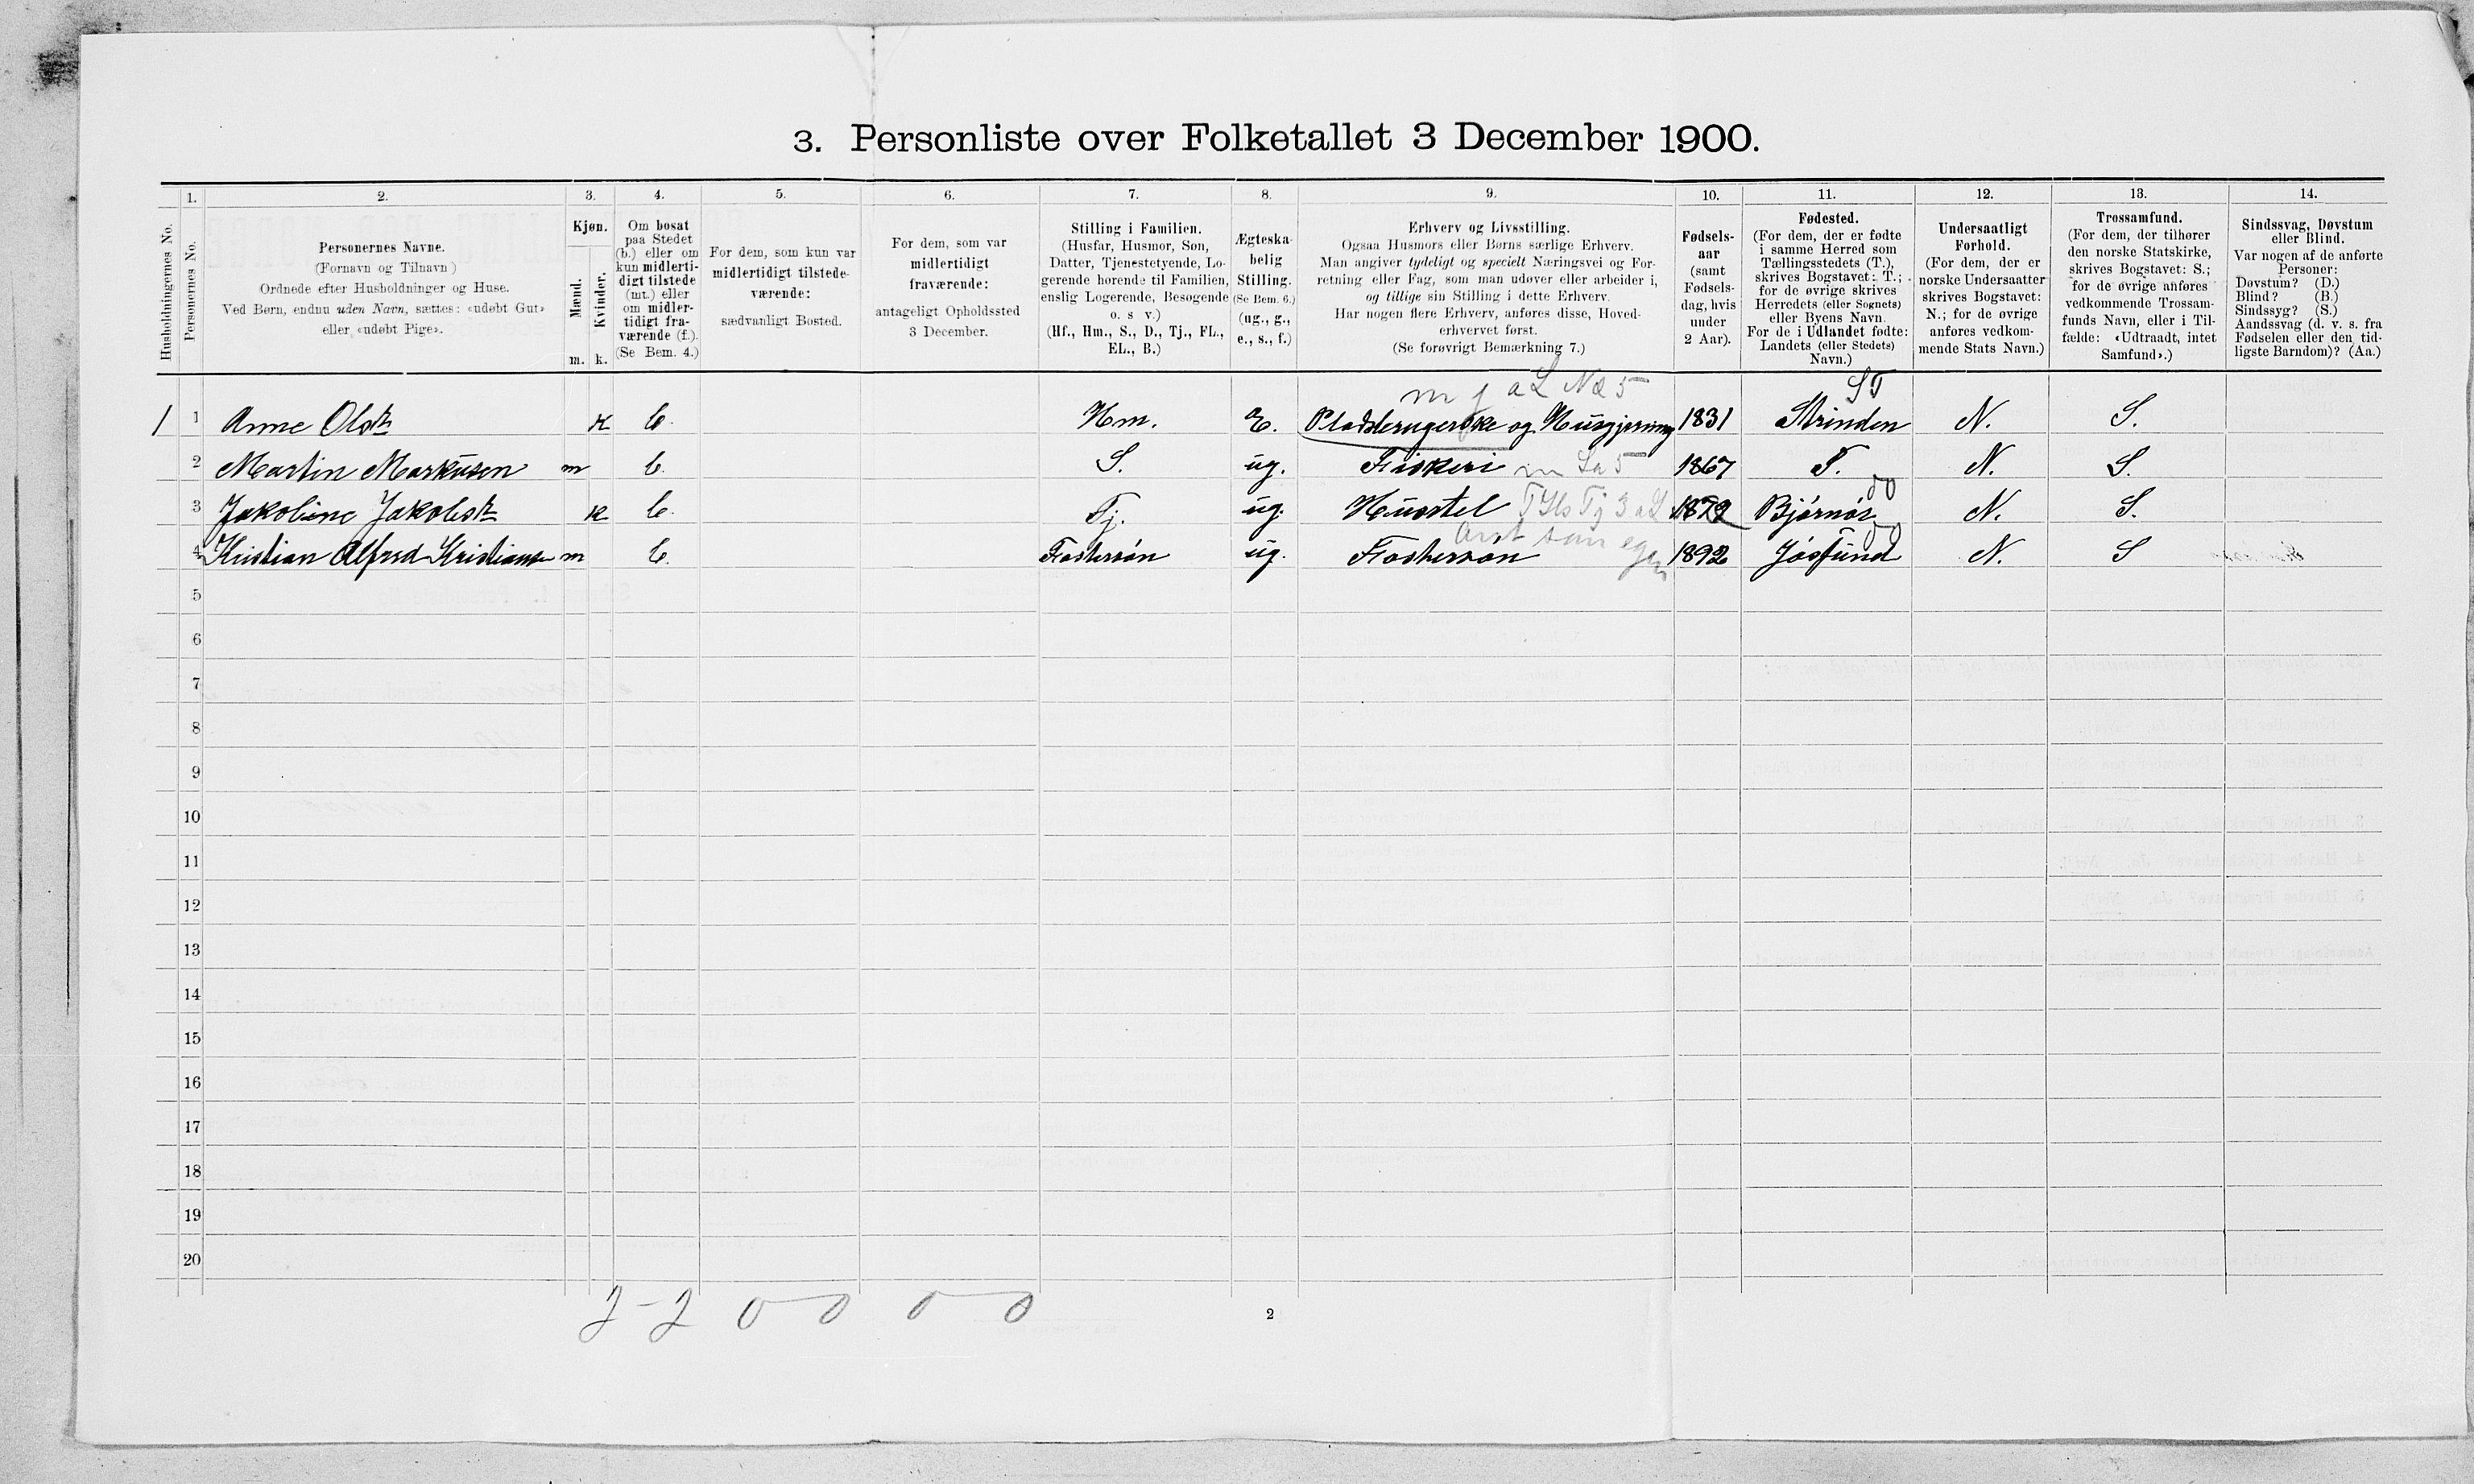 3. Personliste over Folketallet 3 December 1900.
Husholdningernes No.
1.
Personernes No.
2.
Personernes Navne.
(Fornavn og Tilnavn)
Ordnede efter Husholdninger og Huse.
Ved Børn, endnu uden Navn, sættes: «udøbt Gut»
eller «udøbt Pige».
3.
Kjøn.
Mænd.
Kvinder.
m. k.
4.
Om bosat
paa Stedet
(b.) eller om
kun midlerti-
digt tilstede
(mt.) eller
om midler-
tidigt fra-
værende (f.).
(Se Bem. 4.)
5.
For dem, som kun var
midlertidigt tilstede-
værende:
sædvanligt Bosted.
6.
For dem, som var
midlertidigt
fraværende:
antageligt Opholdssted
3 December.
7.
Stilling i Familien.
(Husfar, Husmor, Søn,
Datter, Tjenestetyende, Lo-
gerende hørende til Familien,
enslig Logerende, Besøgende
o. s v.)
(Hf., Hm., S., D., Tj., FL.,
EL., B.)
8.
Ægteska-
belig
Stilling.
(Se Bem. 6.)
(ug., g.,
e., s., f.)
9.
Erhverv og Livsstilling.
Ogsaa Husmors eller Børns særlige Erhverv.
Man angiver tydeligt og specielt Næringsvei og For-
retning eller Fag, som man udøver eller arbeider i,
og tillige sin Stilling i dette Erhverv.
Har nogen flere Erhverv, anføres disse, Hoved-
erhvervet først.
(Se forøvrigt Bemærkning 7.)
10.
Fødsels-
aar
(samt
Fødsels-
dag, hvis
under
2 Aar).
11.
Fødested.
(For dem, der er fødte
i samme Herred som
Tællingsstedets (T.),
skrives Bogstavet: T.;
for de øvrige skrives
Herredets (eller Sognets)
eller Byens Navn.
For de i Udlandet fødte:
Landets (eller Stedets)
Navn.)
12.
Undersaatligt
Forhold.
(For dem, der er
norske Undersaatter
skrives Bogstavet:
N.; for de øvrige
anføres vedkom-
mende Stats Navn.)
13.
Trossamfund.
(For dem, der tilhører
den norske Statskirke,
skrives Bogstavet: S.;
for de øvrige anføres
vedkommende Trossam-
funds Navn, eller i Til-
fælde: «Udtraadt, intet
Samfund».)
14.
Sindssvag, Døvstum
eller Blind.
Var nogen af de anførte
Personer:
Døvstum? (D.)
Blind? (B.)
Sindssyg? (S.)
Aandssvag (d. v. s. fra
Fødselen eller den tid-
ligste Barndom)? (Aa.)
ST
1 1 Anne Olsdt k b. Hm. E. og Husgjerning 1831 Strinden N. S.
2 Martin Markusen m b. S. ug. Fiskeri 1867 T. N. S.
do
3 Jakobine Jakobsdt k b. Tj. ug. Husstel 1872 Bjørnør N. S.
do
4 Kristian Alfred Kristiansen m b. Fostersøn ug. Fostersøn 1892 Jøsfund N. S
5
6
7
8
9
10
11
12
13
14
15
16
17
18
19
20
2-2 0 0 0 0
2